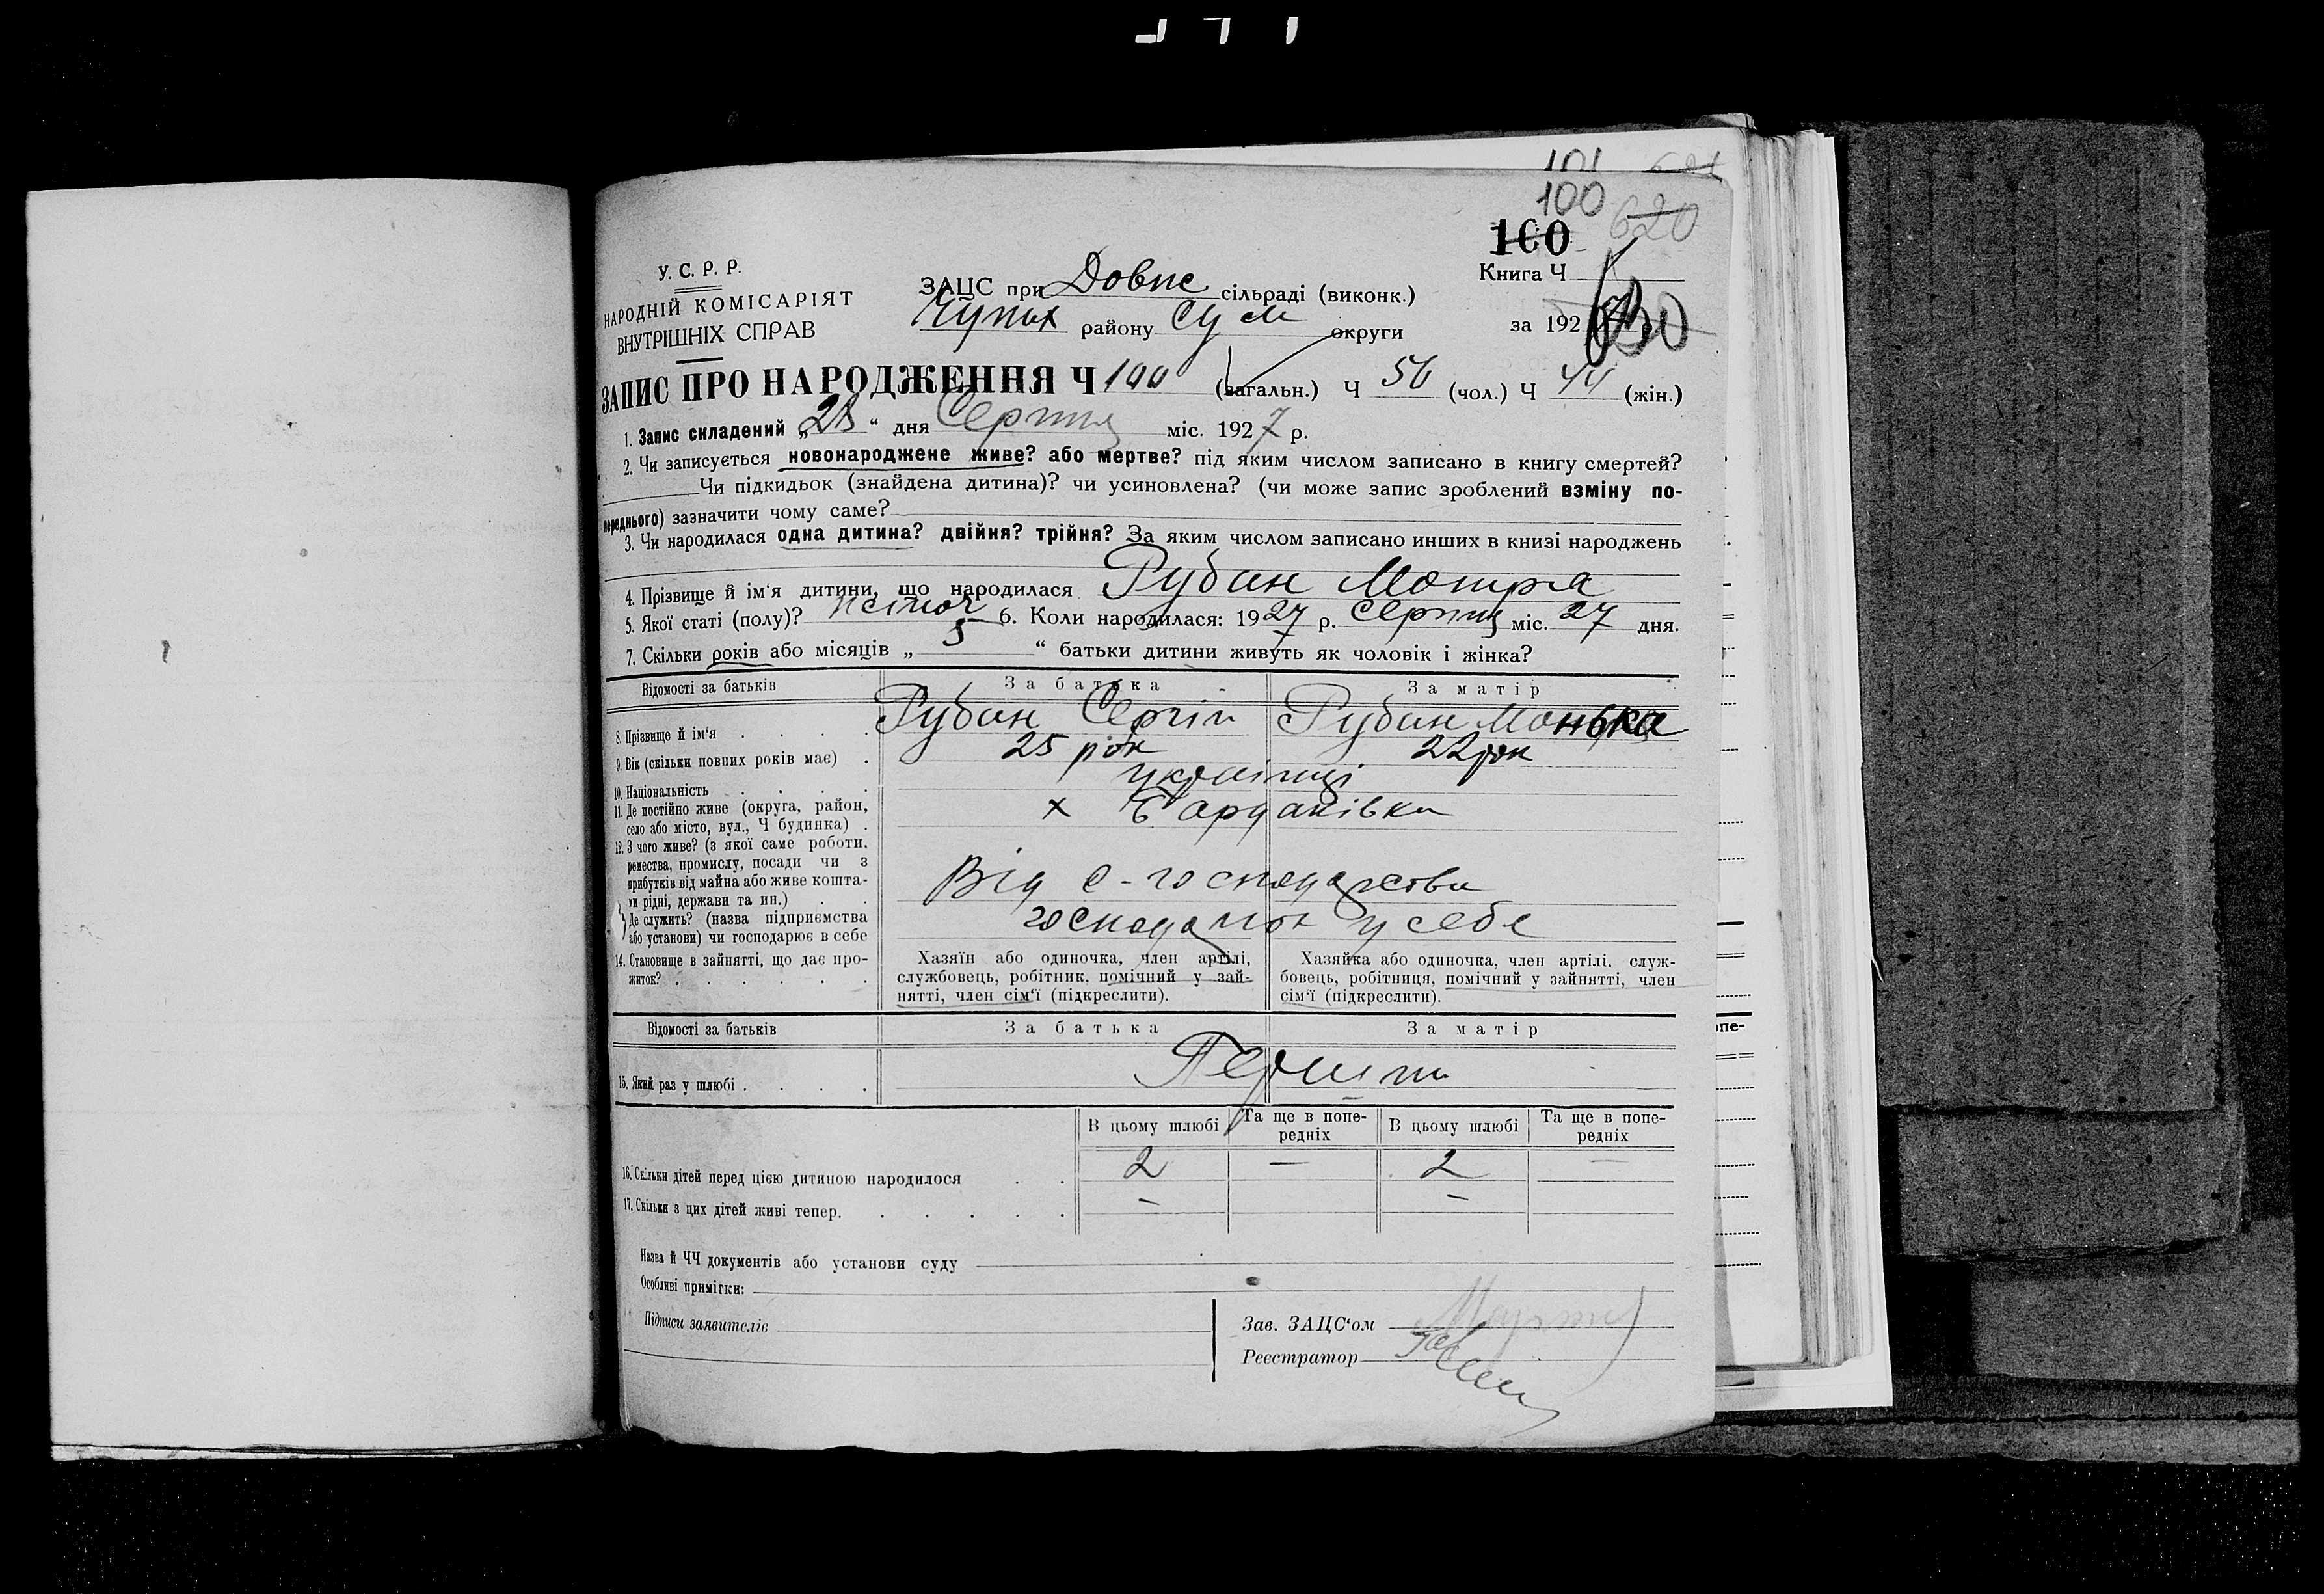 101 621
100 620
100
У. С. Р. Р.
НАРОДНІЙ КОМІСАРІЯТ
ВНУТРІШНІХ СПРАВ
ЗАЦС при Довпс сільраді (виконк.)
Чупах району Сум округи
Книга Ч
за 192
630
ЗАПИС ПРО НАРОДЖЕННЯ Ч 100 (загальн.) Ч 56 (чол.) Ч 44 (жін.)
1. Запис складений „28“ дня Серпня міс. 1927 р.
2. Чи записується новонароджене живе? або мертве? під яким числом записано в книгу смертей?
Чи підкидьок (знайдена дитина)? чи усиновлена? (чи може запис зроблений взміну по-
переднього) зазначити чому саме?
3. Чи народилася одна дитина? двійня? трійня? За яким числом записано инших в книзі народжень
4. Прізвище й ім'я дитини, що народилася Рубан Мотря
5. Якої статі (полу)? жіноч 6. Коли народилася: 1927 р. Серпня міс. 27 дня.
7. Скільки років або місяців „ 5 “ батьки дитини живуть як чоловік і жінка?
Відомості за батьків За батька За матір
8. Прізвище й ім'я Рубан Сергій Рубан Монька
9. Вік (скільки повних років має) 25 рок 22 рок
10. Національність українці
11. Де постійно живе (округа, район,
село або місто, вул., Ч будинка) х Бардаківка
12. З чого живе? (з якої саме роботи,
ремества, промислу, посади чи з
прибутків від майна або живе кошта-
ми рідні, держави та ин.) Від с-господарства
Де служить? (назва підприємства
або установи) чи господарює в себе у себе
14. Становище в зайнятті, що дає про-
житок?
Хазяїн або одиночка, член артілі,
службовець, робітник, помічний у зай-
нятті, член сім'ї (підкреслити).
Хазяйка або одиночка, член артілі, служ-
бовець, робітниця, помічний у зайнятті, член
сім'ї (підкреслити).
Відомості за батьків За батька За матір
15. Який раз у шлюбі
В цьому шлюбі Та ще в попе-
редніх В цьому шлюбі Та ще в попе-
редніх
16. Скільки дітей перед цією дитиною народилося 2 — 2 —
17. Скільки з цих дітей живі тепер. – –
Назва й ЧЧ документів або установи суду
Особливі примітки:
Підписи заявителів
Зав. ЗАЦС'ом
Реєстратор
опе-